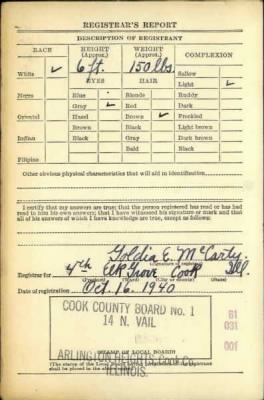 REGISTRAR'S REPORT
DESCRIPTION OF REGISTRANT
RACE HEIGHT (Approx.) WEIGHT (Approx.) COMPLEXION
White ✓ 6 ft. 150 lbs. Sallow
EYES HAIR Light ✓
Negro Blue Blonde Ruddy
Gray ✓ Red Dark
Oriental Hazel Brown ✓ Freckled
Brown Black Light brown
Indian Black Gray Dark brown
Bald Black
Filipino
Other obvious physical characteristics that will aid in identification
I certify that my answers are true; that the person registered has read or has had
read to him his own answers; that I have witnessed his signature or mark and that
all of his answers of which I have knowledge are true, except as follows:
Goldia E. McCarty
(Signature of registrar)
Registrar for 4th Elk Grove Cook Ill.
(Precinct) (Ward) (City or county) (State)
Date of registration Oct. 16, 1940
COOK COUNTY BOARD No. 1
14 N. VAIL
61
031
001
ARLINGTON HEIGHTS, Cook Co.
ILLINOIS.
(STAMP OF LOCAL BOARD)
(The stamp of the Local Board
shall be placed in the